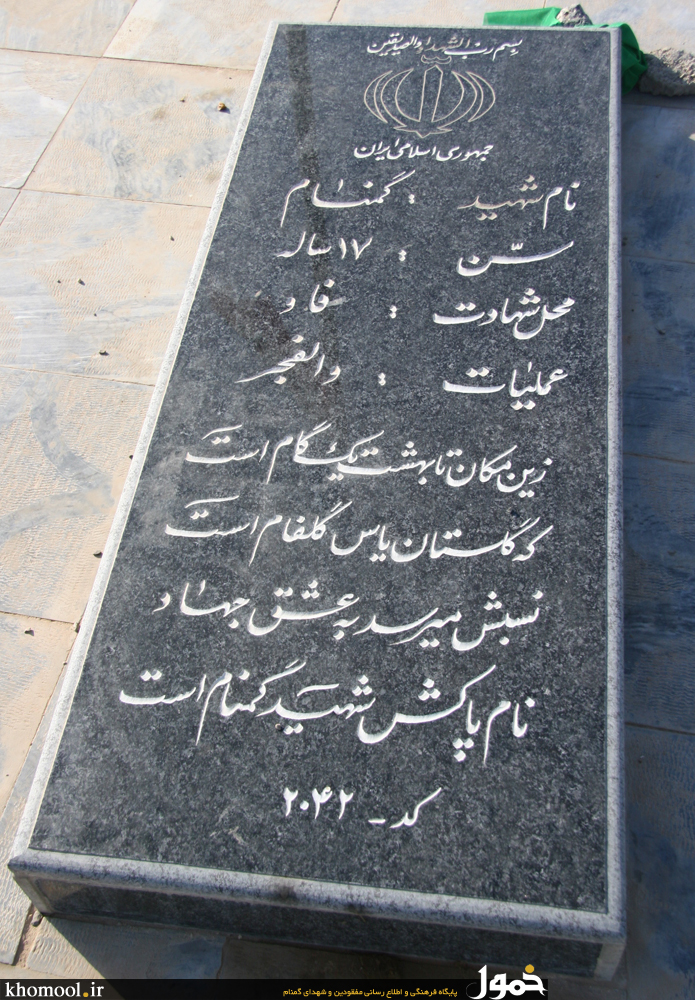 بسم رب الشهدا و الصدیقین
جمهوری اسلامی ایران
نام شهید : گمنام
سن : ۱۷ سال
محل شهادت : فاو
عملیات : والفجر
زین مکان تا بهشت یک گام است
که گلستان یاس گلفام است
نسبش میرسد به عشق جهاد
نام پاکش شهید گمنام است
کد - ۲۰۴۲
khomool.ir
پایگاه فرهنگی و اطلاع رسانی مفقودین و شهدای گمنام
خمول